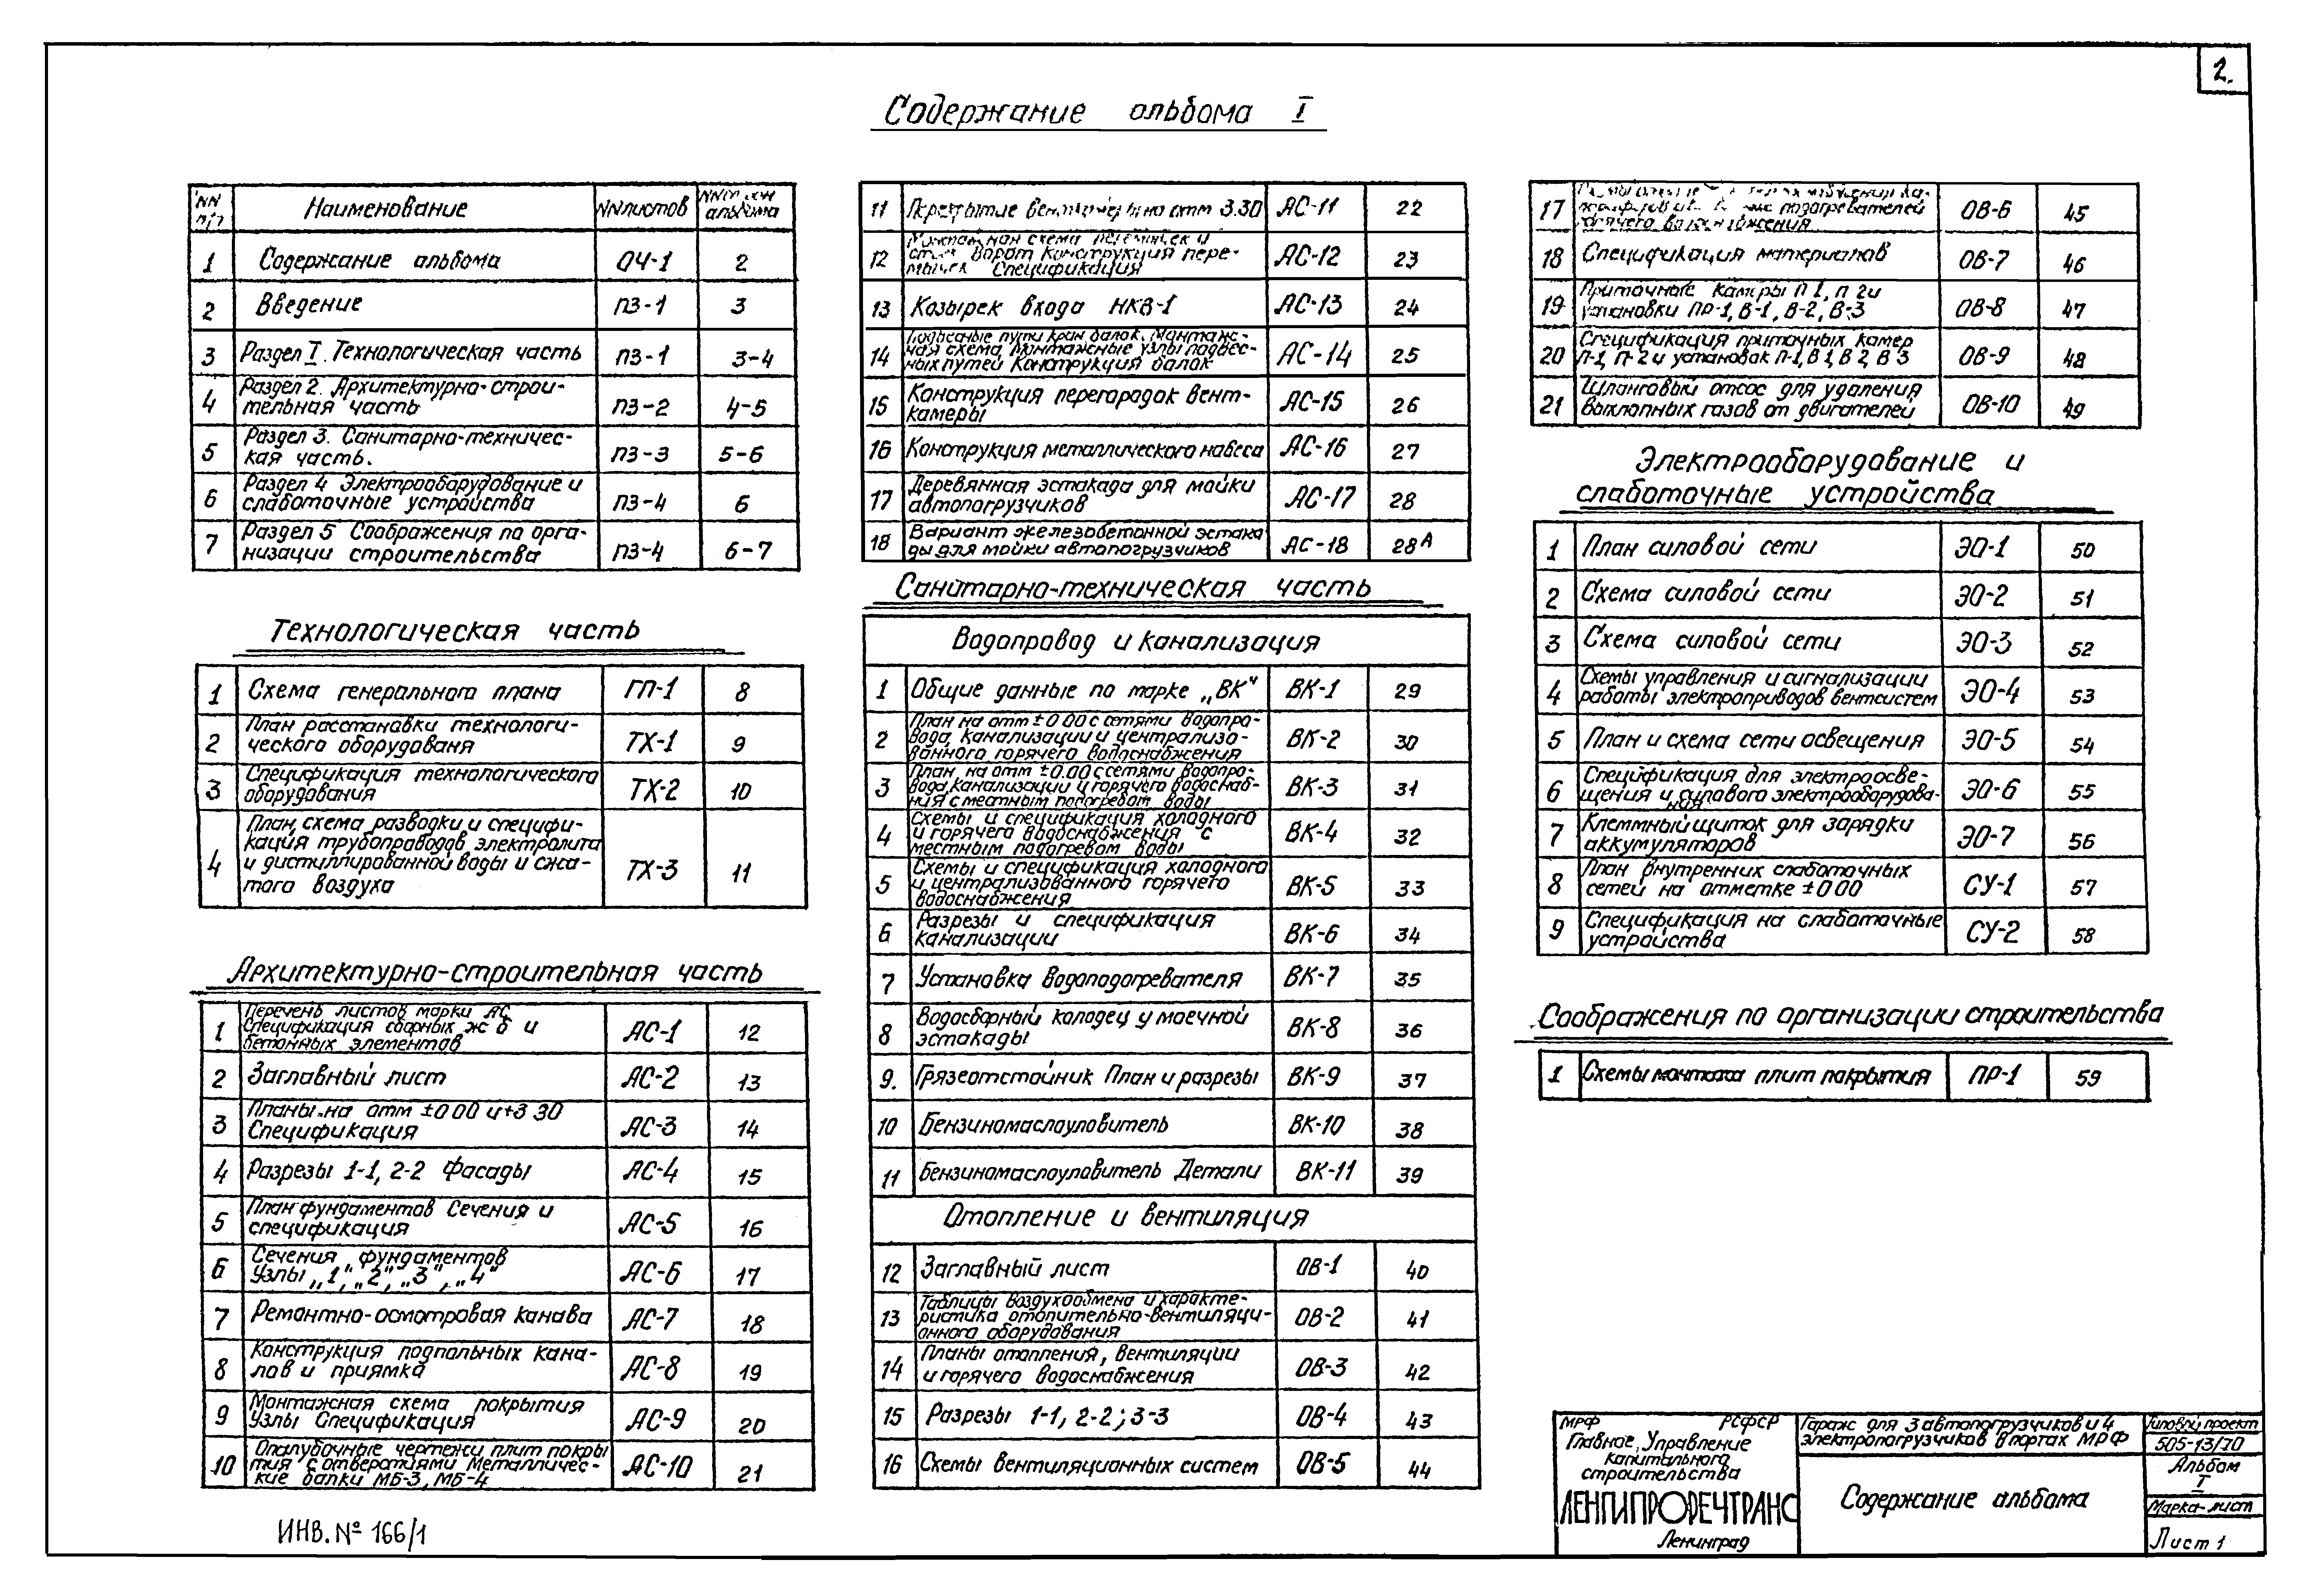 2.
Содержание альбома I
NN п/п Наименование NN листов альбома
1 Содержание альбома ОЧ-1 2
2 Введение ПЗ-1 3
3 Раздел I. Технологическая часть ПЗ-1 3-4
4 Раздел 2. Архитектурно-строи-
тельная часть ПЗ-2 4-5
5 Раздел 3. Санитарно-техничес-
кая часть. ПЗ-3 5-6
6 Раздел 4 Электрооборудование и
слаботочные устройства ПЗ-4 6
7 Раздел 5 Соображения по орга-
низации строительства ПЗ-4 6-7
Технологическая часть
1 Схема генерального плана ГП-1 8
2 План расстановки технологи-
ческого оборудованя ТХ-1 9
3 Спецификация технологического
оборудования ТХ-2 10
4 План, схема разводки и специфи-
кация трубопроводов электролита
и дистиллированной воды и сжа-
того воздуха ТХ-3 11
Архитектурно-строительная часть
1 Перечень листов марки АС
Спецификация сборных ж б и
бетонных элементов АС-1 12
2 Заглавный лист АС-2 13
3 Планы на отм ±0 00 и +3 30
Спецификация АС-3 14
4 Разрезы 1-1, 2-2 Фасады АС-4 15
5 План фундаментов Сечения и
спецификация АС-5 16
6 Сечения фундаментов
Узлы „1“, „2“, „3“, „4“ АС-6 17
7 Ремонтно-осмотровая канава АС-7 18
8 Конструкция подпольных кана-
лов и приямка АС-8 19
9 Монтажная схема покрытия
Узлы Спецификация АС-9 20
10 Опалубочные чертежи плит покры
тия с отверстиями Металличес-
кие балки МБ-3, МБ-4 АС-10 21
ИНВ. № 166/1
11 Перекрытие венткамеры на отм 3.30 АС-11 22
12 Монтажная схема перемычек и
ворот Конструкция пере-
мычек Спецификация АС-12 23
13 Козырек входа НКВ-1 АС-13 24
14 Подвесные пути кран балок. Монтаж-
ная схема, Монтажные узлы подвес-
ных путей Конструкция балок АС-14 25
15 Конструкция перегородок вент-
камеры АС-15 26
16 Конструкция металлического навеса АС-16 27
17 Деревянная эстакада для мойки
автопогрузчиков АС-17 28
18 Вариант железобетонной эстака
ды для мойки автопогрузчиков АС-18 28А
Санитарно-техническая часть
Водопровод и канализация
1 Общие данные по марке „ВК“ ВК-1 29
2 План на отм ±0 00 с сетями водопро-
вода, канализации и централизо-
ванного горячего водоснабжения ВК-2 30
3 План на отм ±0.00 с сетями водопро-
вода, канализации и горячего водоснаб-
ния с местным подогревом воды ВК-3 31
4 Схемы и спецификация холодного
и горячего водоснабжения с
местным подогревом воды ВК-4 32
5 Схемы и спецификация холодного
и централизованного горячего
водоснабжения ВК-5 33
6 Разрезы и спецификация
канализации ВК-6 34
7 Установка водоподогревателя ВК-7 35
8 Водосборный колодец у моечной
эстакады ВК-8 36
9. Грязеотстойник План и разрезы ВК-9 37
10 Бензиномаслоуловитель ВК-10 38
11 Бензиномаслоуловитель Детали ВК-11 39
Отопление и вентиляция
12 Заглавный лист ОВ-1 40
13 Таблицы воздухообмена и характе-
ристика отопительно-вентиляци-
онного оборудования ОВ-2 41
14 Планы отопления, вентиляции
и горячего водоснабжения ОВ-3 42
15 Разрезы 1-1, 2-2; 3-3 ОВ-4 43
16 Схемы вентиляционных систем ОВ-5 44
17 подогревателей
горячего водоснабжения ОВ-6 45
18 Спецификация материалов ОВ-7 46
19 Приточные камеры П 1, П 2 и
установки ПР-1, В-1, В-2, В-3 ОВ-8 47
20 Спецификация приточных камер
П-1, П-2 и установок П-1, В 1, В 2, В 3 ОВ-9 48
21 Шланговый отсос для удаления
выхлопных газов от двигателей ОВ-10 49
Электрооборудование и
слаботочные устройства
1 План силовой сети ЭО-1 50
2 Схема силовой сети ЭО-2 51
3 Схема силовой сети ЭО-3 52
4 Схемы управления и сигнализации
работы электроприводов вентсистем ЭО-4 53
5 План и схема сети освещения ЭО-5 54
6 Спецификация для электроосве-
щения и силового электрооборудова-
ния ЭО-6 55
7 Клеммный щиток для зарядки
аккумуляторов ЭО-7 56
8 План внутренних слаботочных
сетей на отметке ±0 00 СУ-1 57
9 Спецификация на слаботочные
устройства СУ-2 58
Соображения по организации строительства
1 Схемы монтажа плит покрытия ПР-1 59
МРФ РСФСР
Главное Управление
капитального
строительства
ЛЕНГИПРОРЕЧТРАНС
Ленинград
Гараж для 3 автопогрузчиков и 4
электропогрузчиков в портах МРФ
Содержание альбома
Типовой проект
505-13/70
Альбом
I
Марка-лист
Лист 1